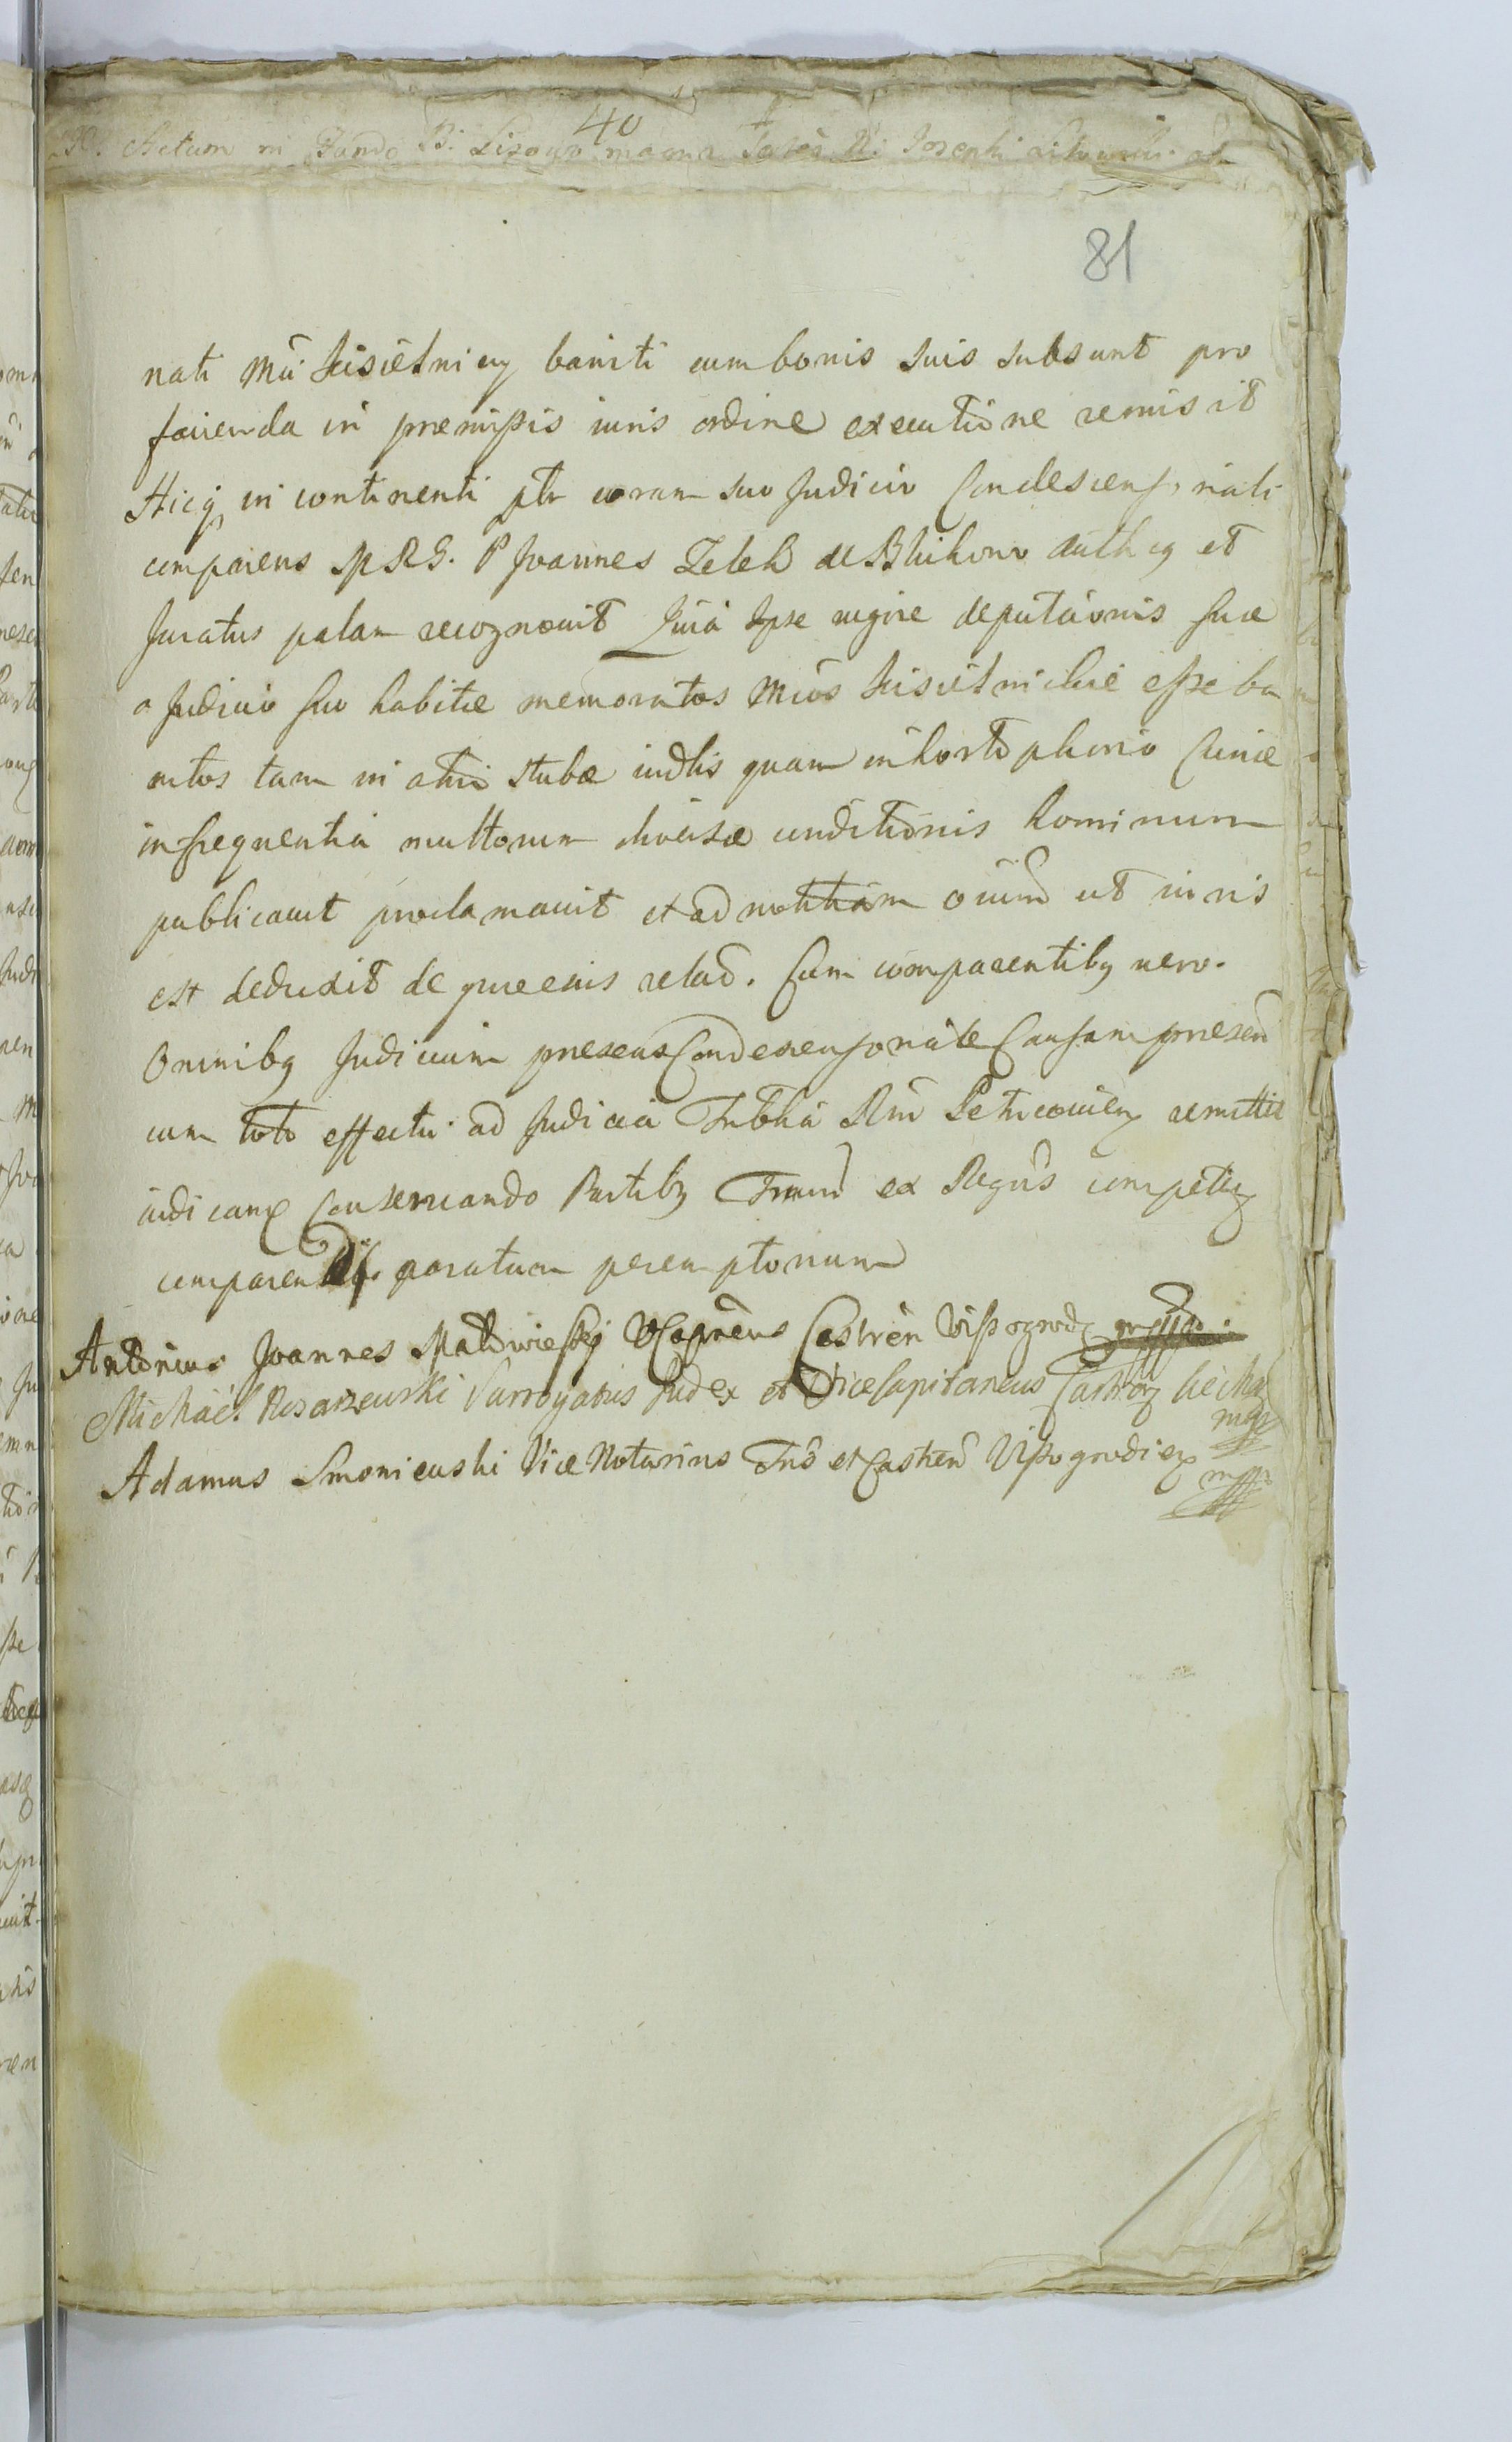 40
Actum in Fundo B: Josephi
81
nati Mci Kisielnicy banniti cum bonis suis subsunt pro
facienda in premissis iuris ordine executione remisit
Hicq in continenti ptr coram suo Judicio Condescensionali
comparens M R G. P Joannes Zelek de Blichowo authcq et
Juratus palam recognovit Quia Ipse vigore deputaonis suæ
a Judicio suo habitæ memoratos Mcos Kisielnickie esse ba
nitos tam in atrio stubæ iudlis quam in hostio phorio Curiæ
in frequentia multorum diversæ conditionis hominum
publicavit proclamavit et ad notitiam oium ut iuris
est deduxit de quo eius relaō. Cum comparentibq vero
Omnibq Judicium presens Condescensionale Causam presen
cum toto effectu ad Judicia Trblia Rni Petricovien remittit
iudicanq Conservando Partibq Tmum ex Regris competen
comparendi paratum peremptorium
Antonius Joannes VCapneus Castren Vissogrod mpp
Michäel Rosarzewski Surrogatus Judex et ViceCapitaneus mpp
Adamus Smoniewski Vice Notarius Tris et Castren Vissogrodien mpp